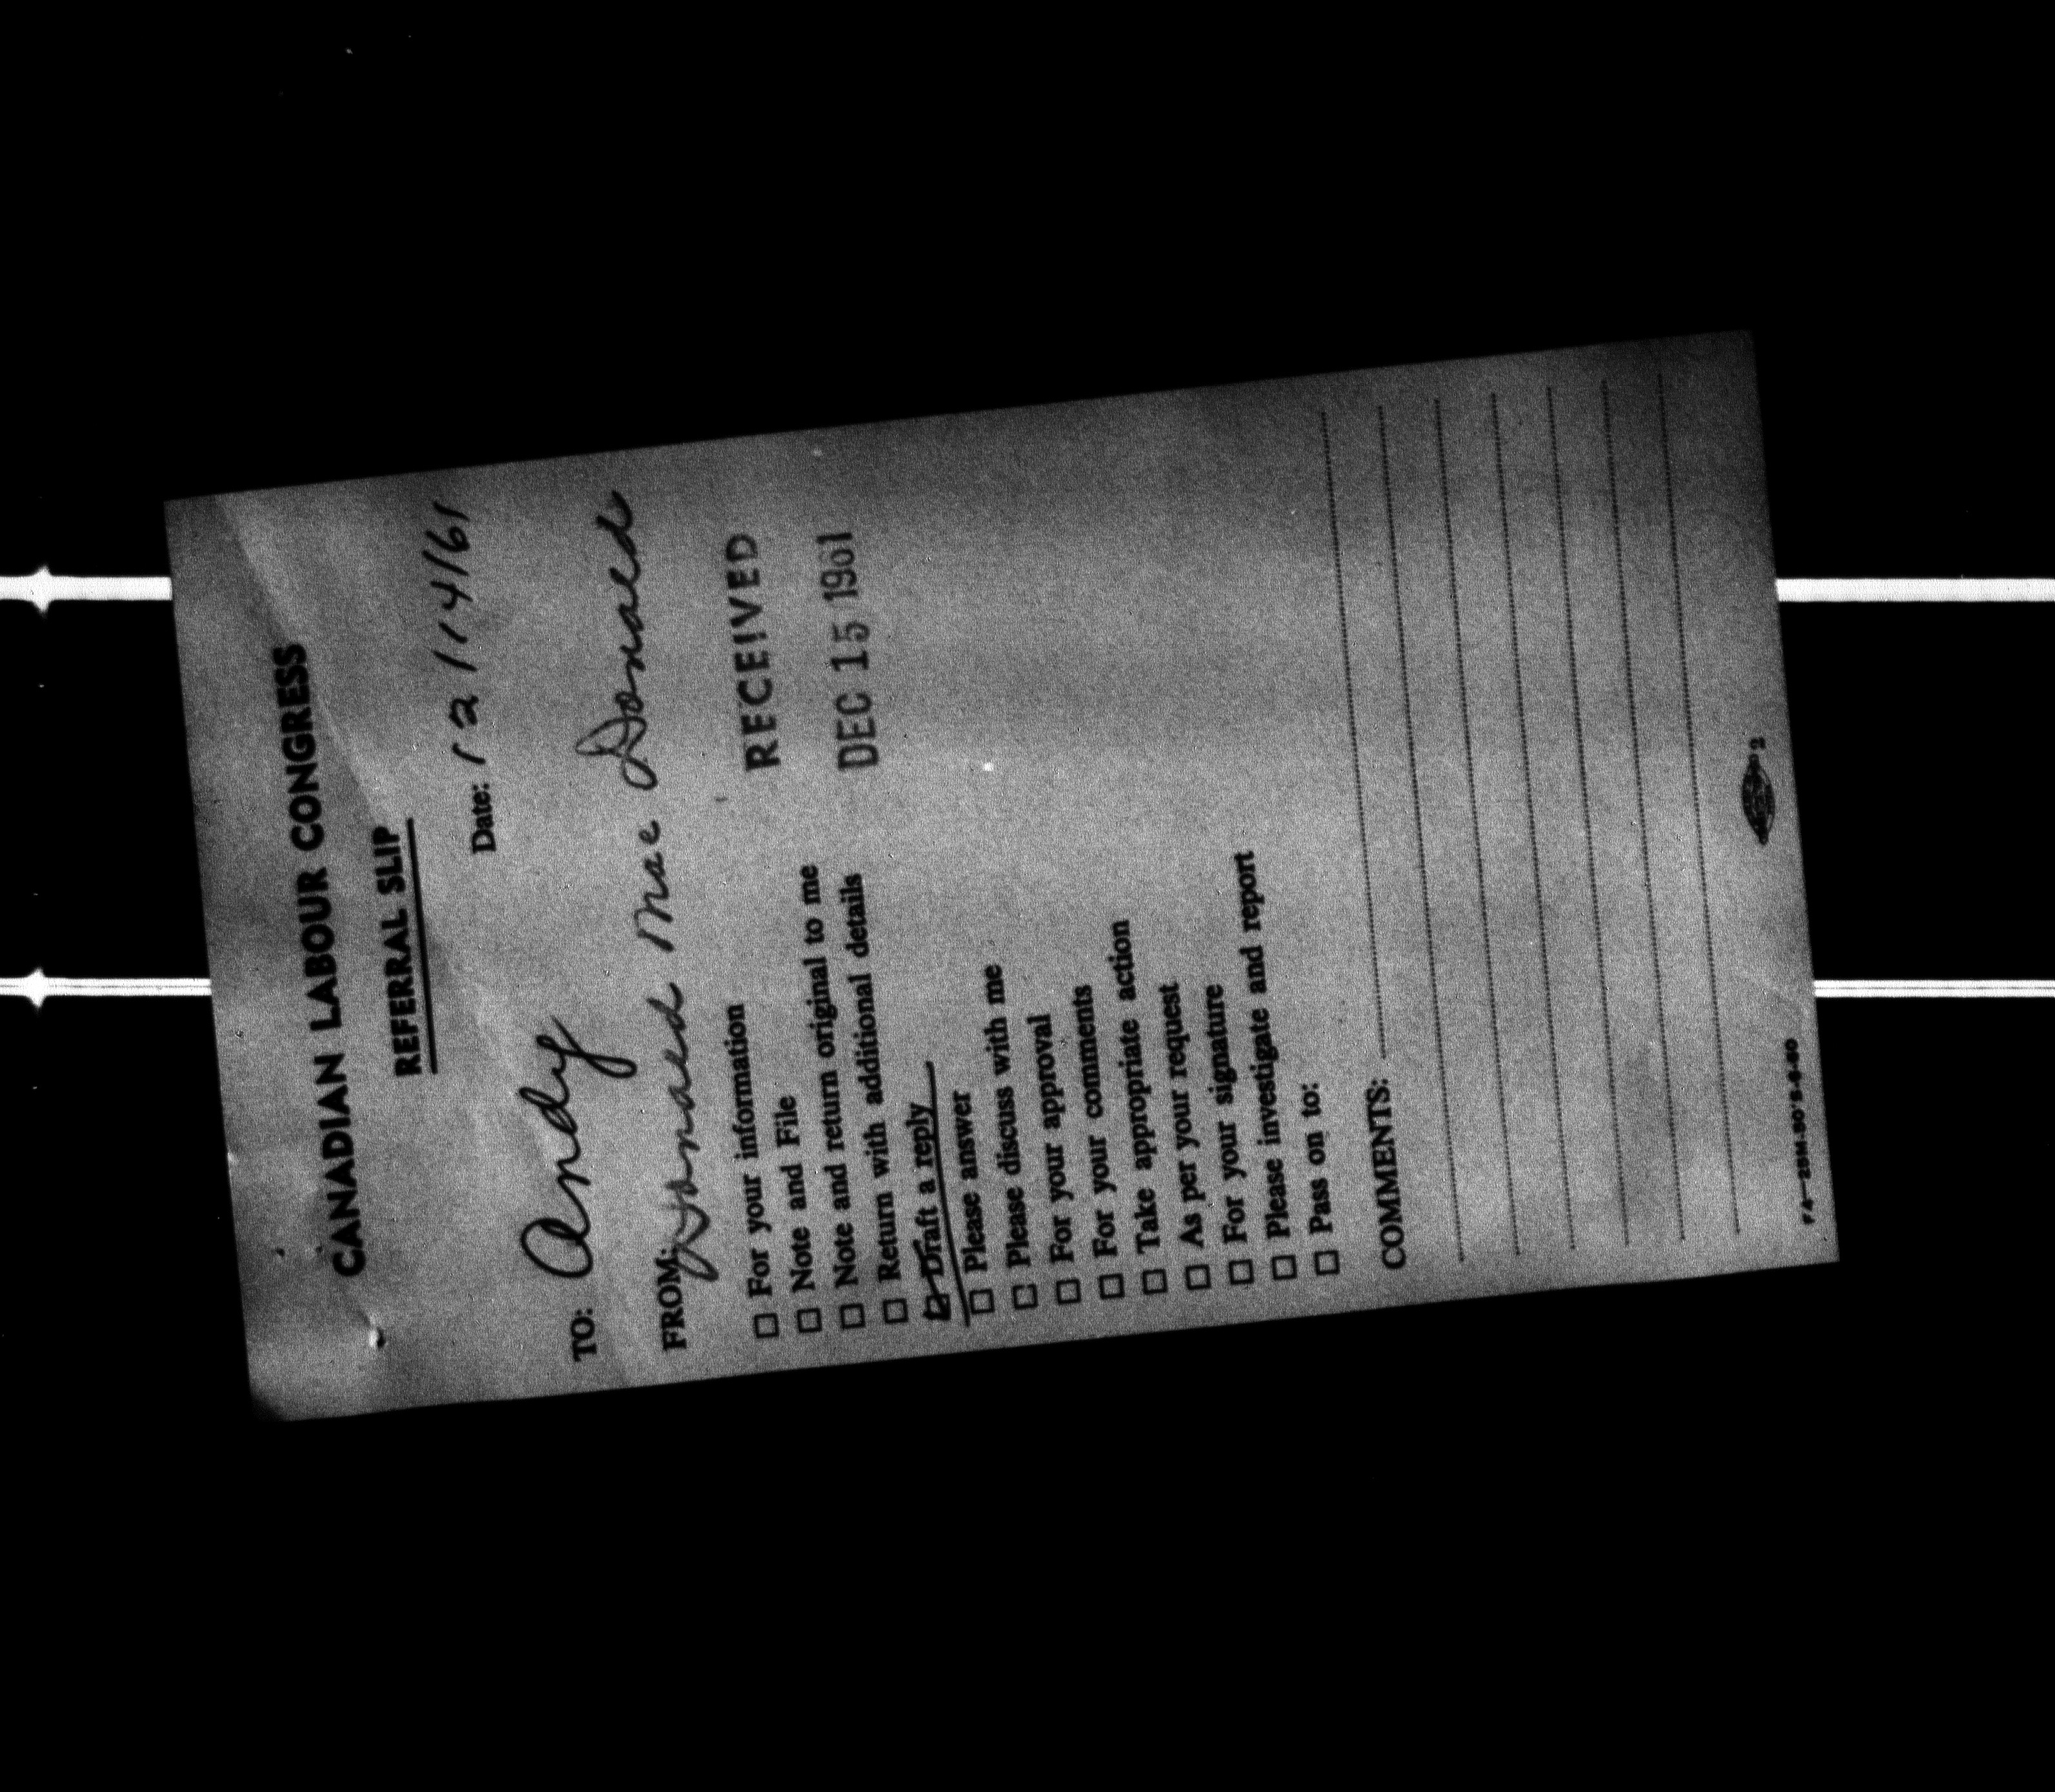 CANADIAN LABOUR CONGRESS
REFERRAL SLIP
Date: 12/14/61
TO: Andy
FROM: Donald Mac Donald
☐ For your information
☐ Note and File
☐ Note and return original to me
☐ Return with additional details
☑ Draft a reply
☐ Please answer
☐ Please discuss with me
☐ For your approval
☐ For your comments
☐ Take appropriate action
☐ As per your request
☐ For your signature
☐ Please investigate and report
☐ Pass on to:
RECEIVED
DEC 15 1961
COMMENTS:
2